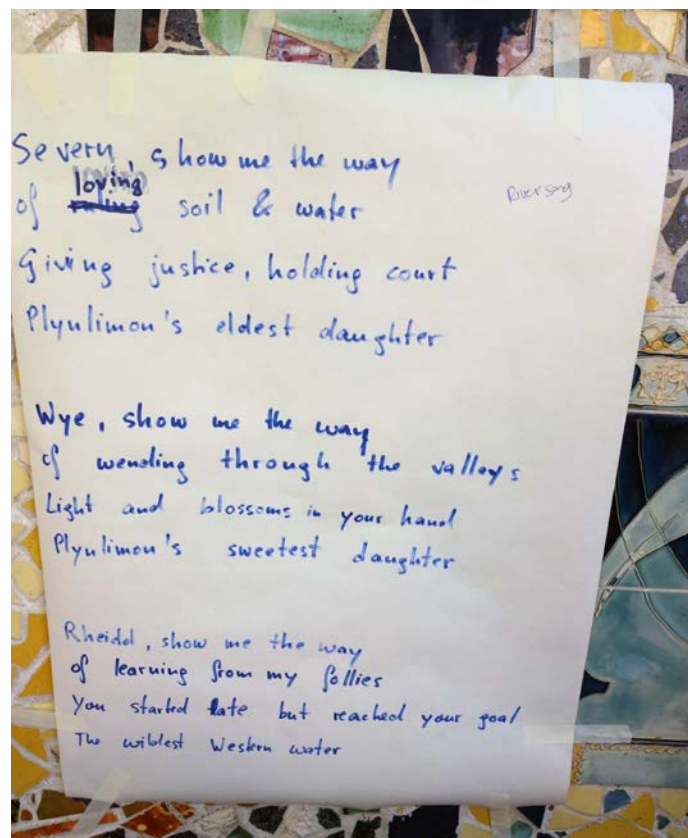 Severn, show me the way
of loving soil & water
River song
Giving justice, holding court
Plynlimon's eldest daughter
Wye, show me the way
of wending through the valleys
Light and blossoms in your hand
Plynlimon's sweetest daughter
Rheidol, show me the way
of learning from my follies
You started late but reached your goal
The wildest Western water